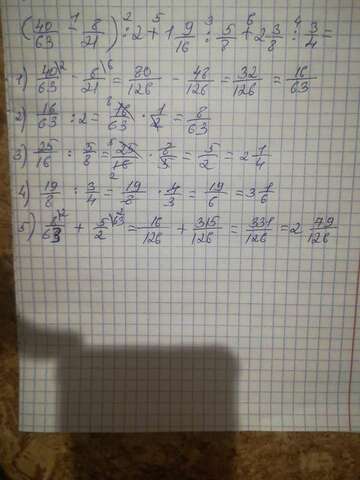 (40/63 - 8/21) : 2 + 1 9/16 : 5/8 + 2 3/8 : 3/4 =
1) 40/63 - 8/21 = 80/126 - 48/126 = 32/126 = 16/63
2) 16/63 : 2 = 16/63 · 1/2 = 8/63
3) 25/16 : 5/8 = 25/16 · 8/5 = 5/2 = 2 1/4
4) 19/8 : 3/4 = 19/8 · 4/3 = 19/6 = 3 1/6
5) 8/63 + 5/2 = 16/126 + 315/126 = 331/126 = 2 79/126